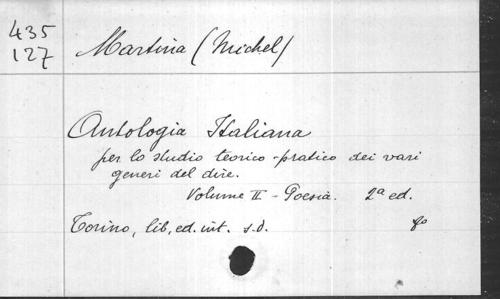 435
127
Martina (Michel)
Antologia Italiana
per lo studio teorico-pratico dei vari
generi del dire.
Volume II - Poesia. 2a ed.
Torino, lib, ed. int. s.d.